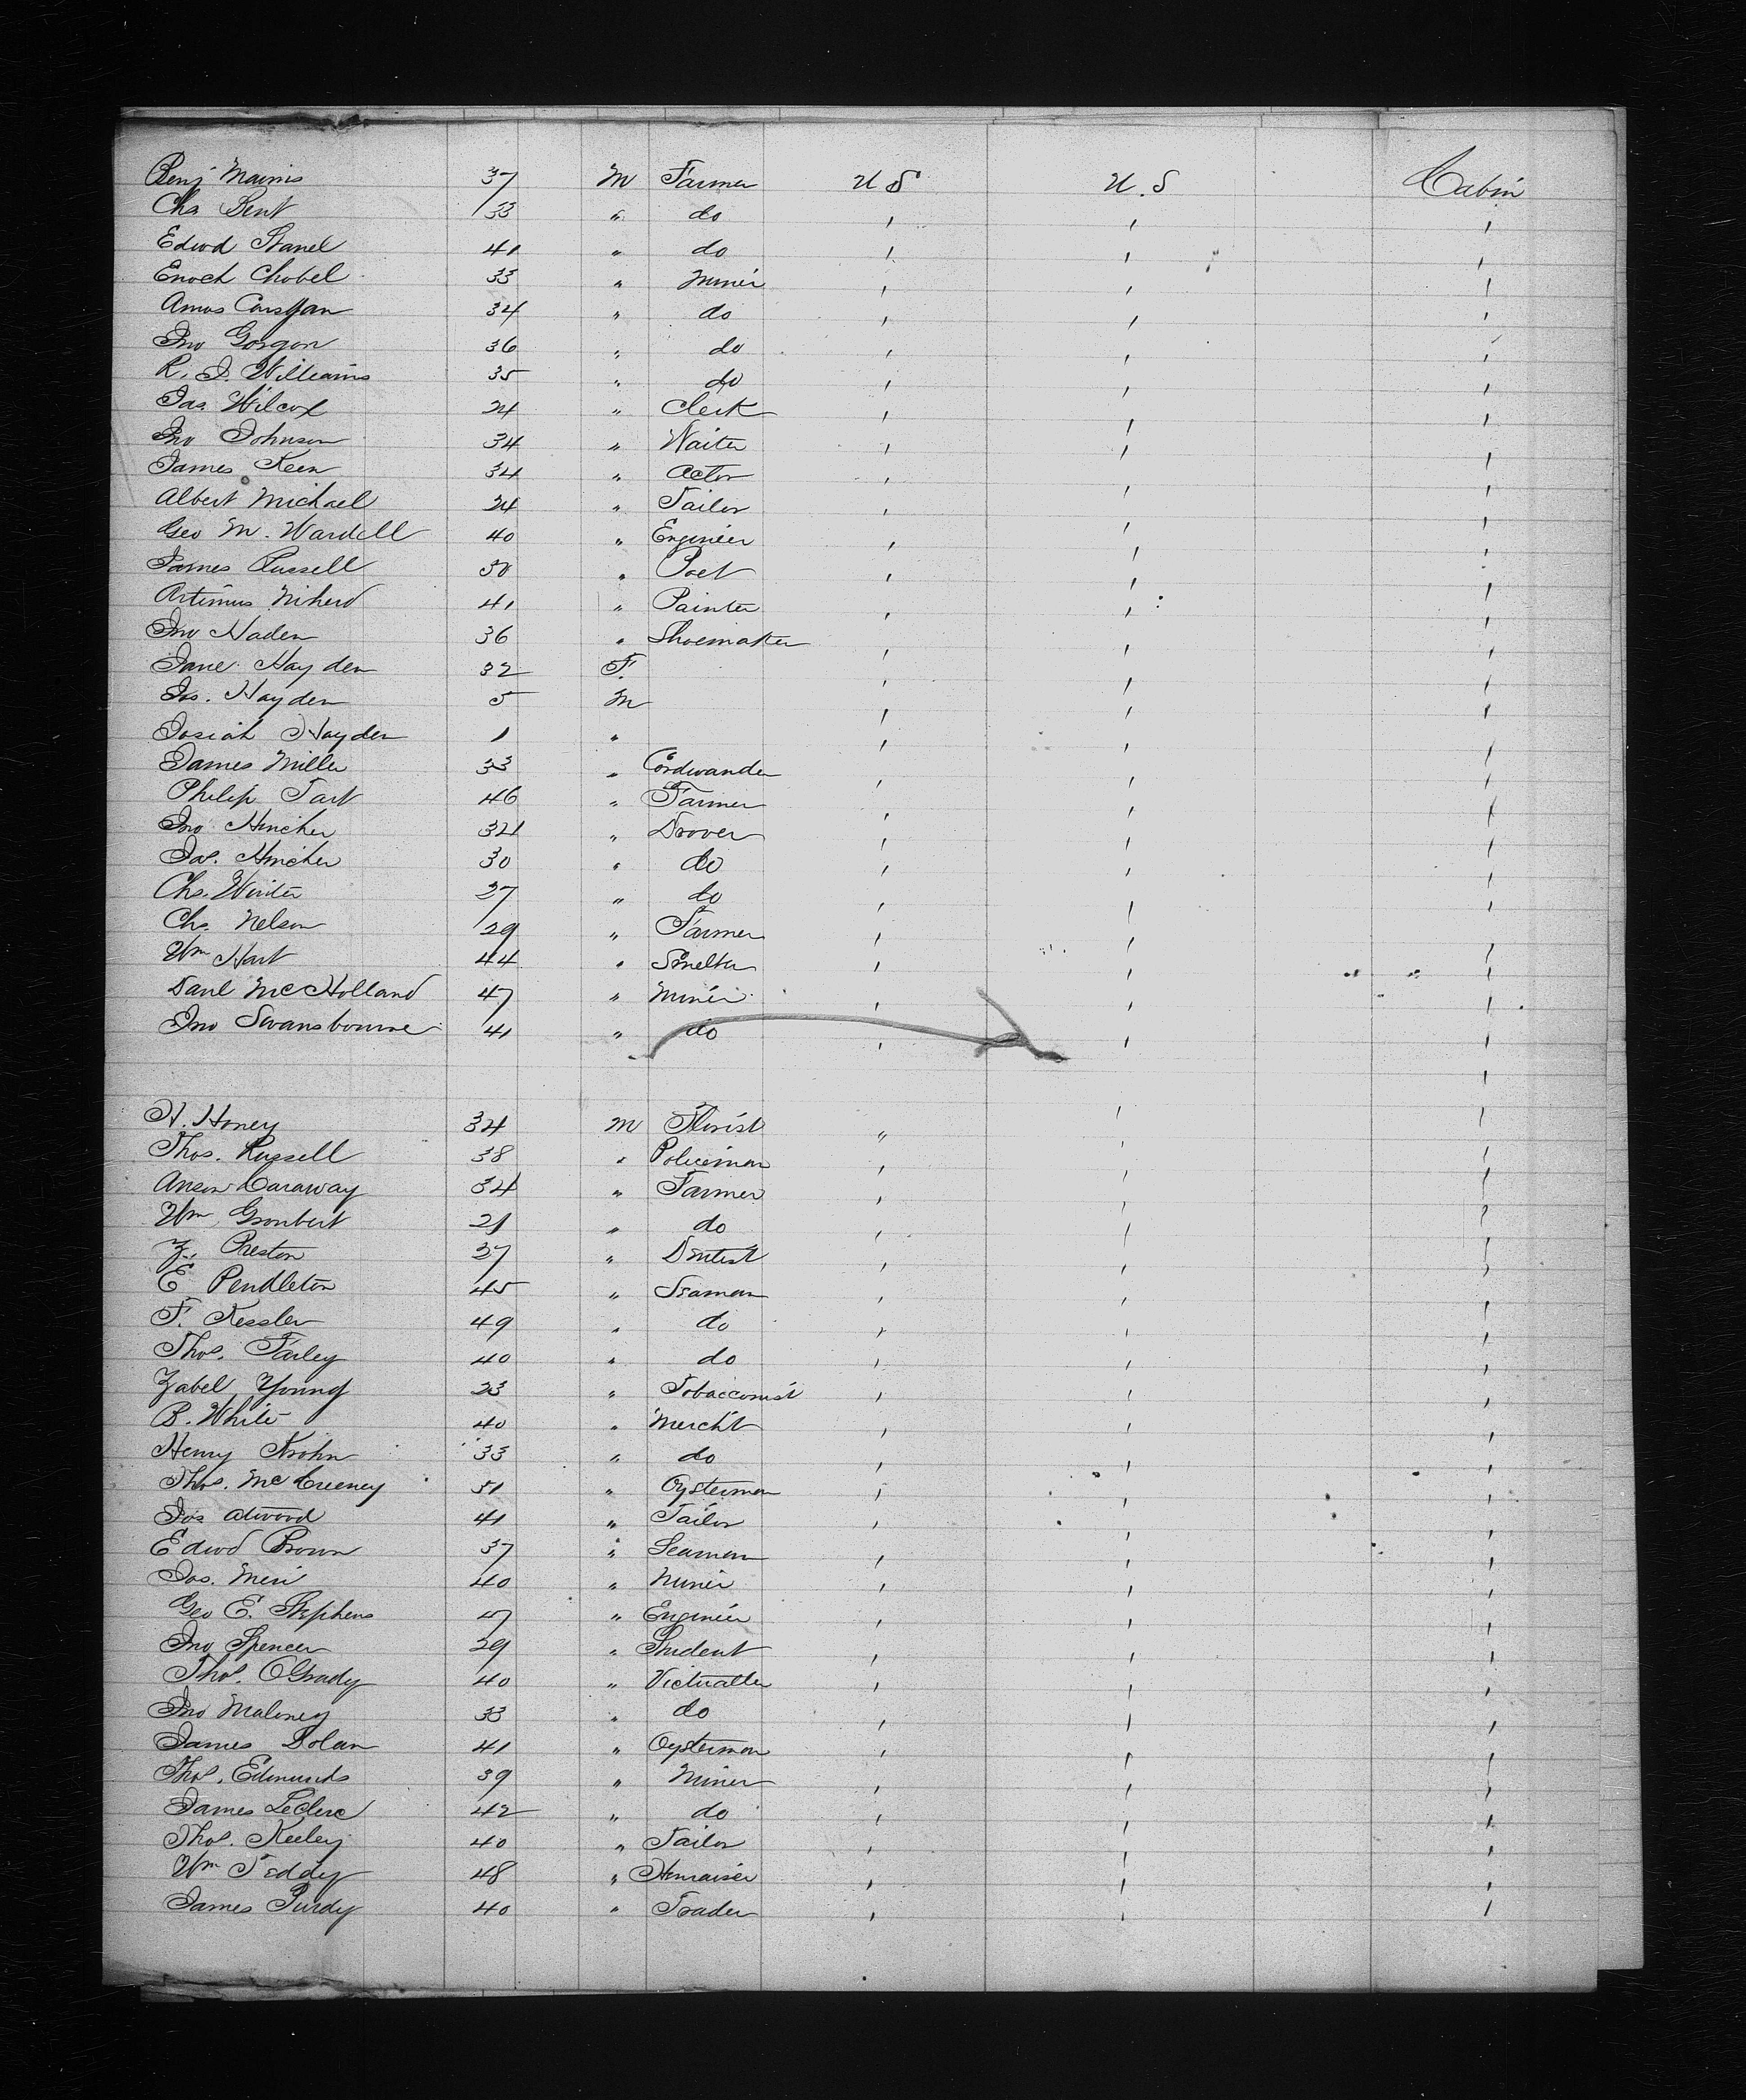 Benj Mains 37 M Farmer U S U. S Cabin
Chs. Bent 33 " do ' ' '
Edwd Stanel 41 " do ' ' '
Enoch Chobel 33 " Miner ' ' '
Amos 34 " do ' ' '
Jno Gorgon 36 " do ' ' '
R. J. Williams 35 " do ' ' '
Jas. Wilcox 24 " Clerk ' ' '
Jno Johnson 34 " Waiter ' ' '
James Keen 34 " Actor ' ' '
Albert Michael 24 " Tailor ' ' '
Geo M. Wardell 40 " Engineer ' ' '
James Russell 50 " Poet ' ' '
Artimus 41 " Painter ' ' '
Jno Haden 36 " Shoemaker ' ' '
Jane Hayden 32 F. ' ' '
Jos. Hayden 5 M ' ' '
Josiah Hayden 1 " ' ' '
James Miller 33 " Cordwander ' ' '
Philip Tart 46 " Farmer ' ' '
Jno Hincher 34 " Drover ' ' '
Jas. Hincher 30 " do ' ' '
Chs. Winter 27 " do ' ' '
Chs. Nelson 29 " Farmer ' ' '
Wm Hart 44 " Smelter ' ' '
Danl McHolland 47 " Miner ' ' '
Jno Swansbourne 41 " do ' ' '
H. Honey 34 M Florist " ' '
Thos. Russell 38 " Policeman ' ' '
Anson Caraway 34 " Farmer ' ' '
Wm Gronbert 21 " do ' ' '
Z. Preston 37 " Dentist ' ' '
E Pendleton 45 " Seaman ' ' '
F. Kessler 49 " do ' ' '
Thos. Farley 40 " do ' ' '
Zabel Young 23 " Tobacconist ' ' '
B. White 40 " Mercht ' ' '
Henry Krohn 33 " do ' ' '
Thos. McCreeney 51 " Oysterman ' ' '
Jos Atwood 41 " Tailor ' ' '
Edwd Brown 37 " Seaman ' ' '
Jos. Meri 40 " Miner ' ' '
Geo E. Stephens 47 " Engineer ' ' '
Jno Spencer 29 " Student ' ' '
Thos. OGrady 40 " Victualler ' ' '
Jno Maloney 33 " do ' ' '
James Dolan 41 " Oysterman ' ' '
Thos. Edmunds 39 " Miner ' ' '
James LeClerc 42 " do ' ' '
Thos. Keeley 40 " Tailor ' ' '
Wm Teddy 48 " ' ' '
James Purdy 40 " Trader ' ' '